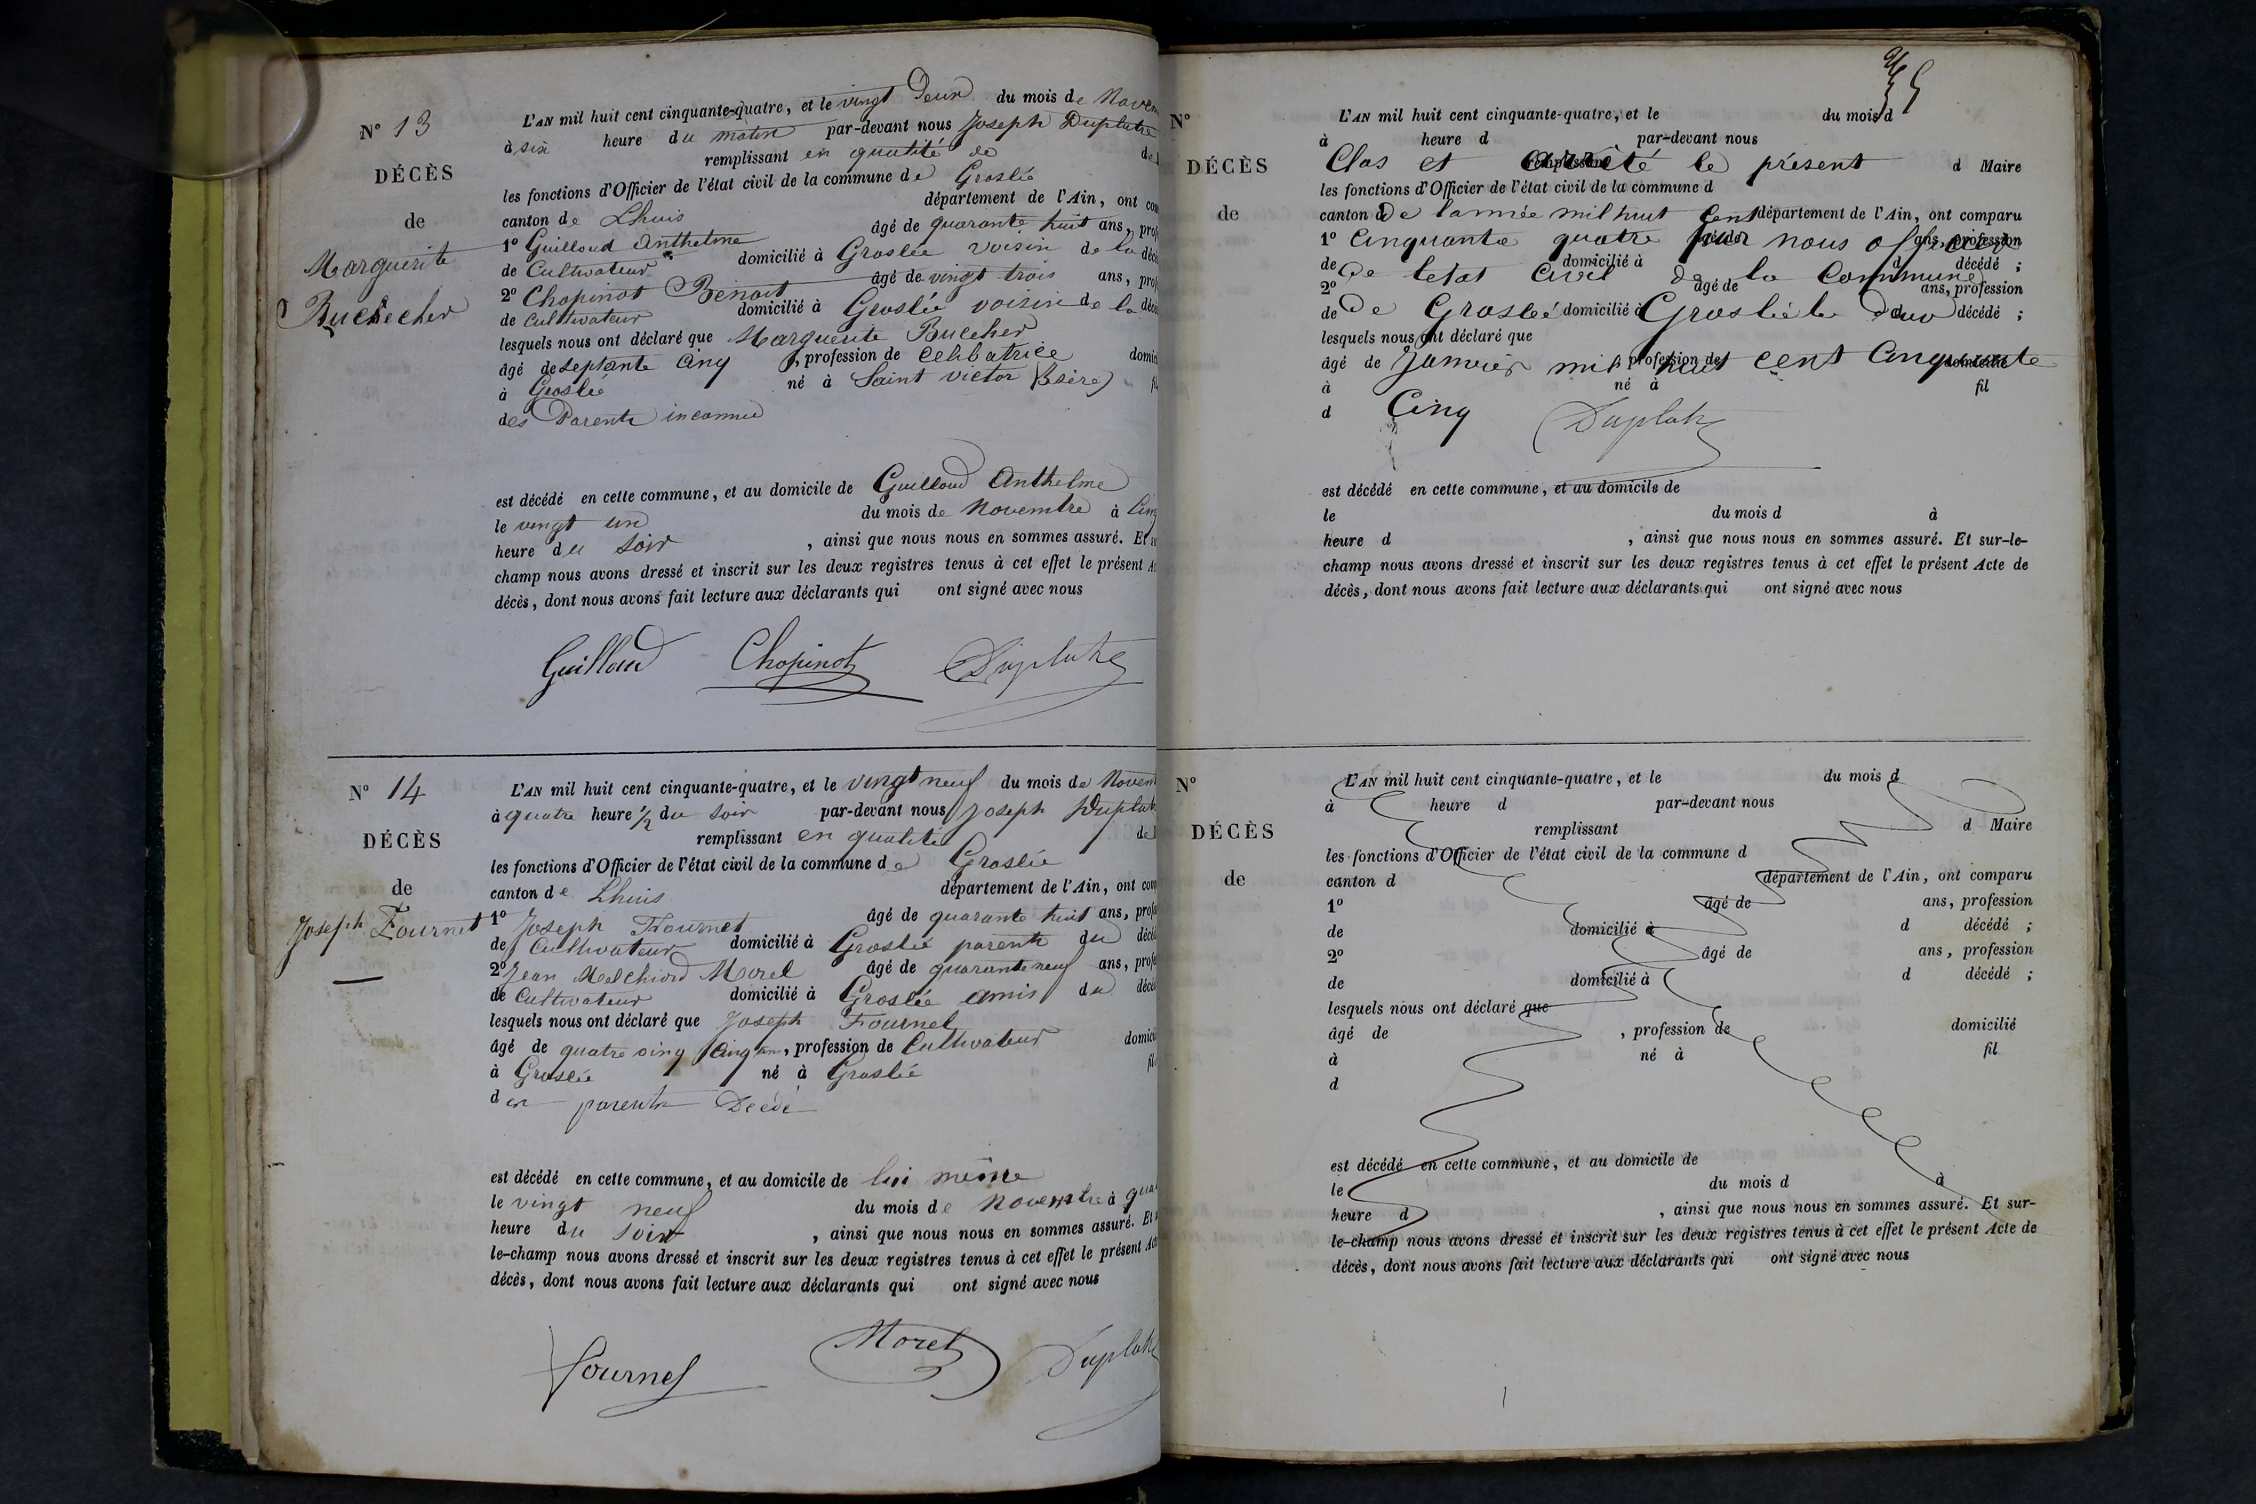 N° 13
DÉCÈS
de
Marguerite
Buchecher
L'AN mil huit cent cinquante-quatre, et le vingt Deux du mois de Novem
à six heure du matin par-devant nous Joseph Duplatre
remplissant en qualité de de
les fonctions d'Officier de l'état civil de la commune de Groslée
canton de Lhuis département de l'Ain, ont com
1° Guilloud Anthelme âgé de quarante huit ans, prof
de Cultivateur domicilié à Groslée voisin de la décé
2° Chopinot Benoit âgé de vingt trois ans, prof
de cultivateur domicilié à Groslée voisin de la décé
lesquels nous ont déclaré que Marguerite Bucher
âgé de septante cinq , profession de celibatrice domici
à Groslée né à Saint victor (Isère) fi
des Parents inconnu
est décédé en cette commune, et au domicile de Guilloud Anthelme
le vingt un du mois de Novembre à Cinq
heure du soir , ainsi que nous nous en sommes assuré. Et
champ nous avons dressé et inscrit sur les deux registres tenus à cet effet le présent A
décès, dont nous avons fait lecture aux déclarants qui ont signé avec nous
Guilloud Chopinot Duplatre
N° 14
DÉCÈS
de
Joseph Fournet
L'AN mil huit cent cinquante-quatre, et le vingt neuf du mois de Novem
à quatre heure 1/2 du soir par-devant nous Joseph Duplat
remplissant en qualité de
les fonctions d'Officier de l'état civil de la commune de Groslée
canton de Lhuis département de l'Ain, ont com
1° Joseph Fournet âgé de quarante huit ans, profe
de Cultivateur domicilié à Groslée parents du décé
2° Jean Melchiord Morel âgé de quarante neuf ans, profe
de Cultivateur domicilié à Groslée amis du décé
lesquels nous ont déclaré que Joseph Fournet
âgé de quatre cinq ans, profession de Cultivateur domici
à Groslée né à Groslée fil
des parents Décédé
est décédé en cette commune, et au domicile de lui même
le vingt neuf du mois de novembre à qua
heure du soir , ainsi que nous nous en sommes assuré. Et
le-champ nous avons dressé et inscrit sur les deux registres tenus à cet effet le présent Ac
décès, dont nous avons fait lecture aux déclarants qui ont signé avec nous
Fournet Morel Duplatre
N°
DÉCÈS
de
L'AN mil huit cent cinquante-quatre, et le du mois d
à heure d par-devant nous
Clos et arrêté le présent d Maire
remplissant
les fonctions d'Officier de l'état civil de la commune d
canton d De lannée mil huit Cent département de l'Ain, ont comparu
1° Cinquante quatre par nous officier âgé de ans, profession
de De letat Civil De la Commune domicilié à d décédé ;
2° âgé de ans, profession
de De Groslée domicilié à Groslée le Deux d décédé ;
lesquels nous ont déclaré que
âgé de Janvier mil huit cent Cinquante , profession de domicilié
à né à fil
d Cinq Duplatre
est décédé en cette commune, et au domicile de
le du mois d à
heure d , ainsi que nous nous en sommes assuré. Et sur-le-
champ nous avons dressé et inscrit sur les deux registres tenus à cet effet le présent Acte de
décès, dont nous avons fait lecture aux déclarants qui ont signé avec nous
N°
DÉCÈS
de
L'AN mil huit cent cinquante-quatre, et le du mois d
à heure d par-devant nous
remplissant d Maire
les fonctions d'Officier de l'état civil de la commune d
canton d département de l'Ain, ont comparu
1° âgé de ans, profession
de domicilié à d décédé ;
2° âgé de ans, profession
de domicilié à d décédé ;
lesquels nous ont déclaré que
âgé de , profession de domicilié
à né à fil
d
est décédé en cette commune, et au domicile de
le du mois d à
heure d , ainsi que nous nous en sommes assuré. Et sur-
le-champ nous avons dressé et inscrit sur les deux registres tenus à cet effet le présent Acte de
décès, dont nous avons fait lecture aux déclarants qui ont signé avec nous